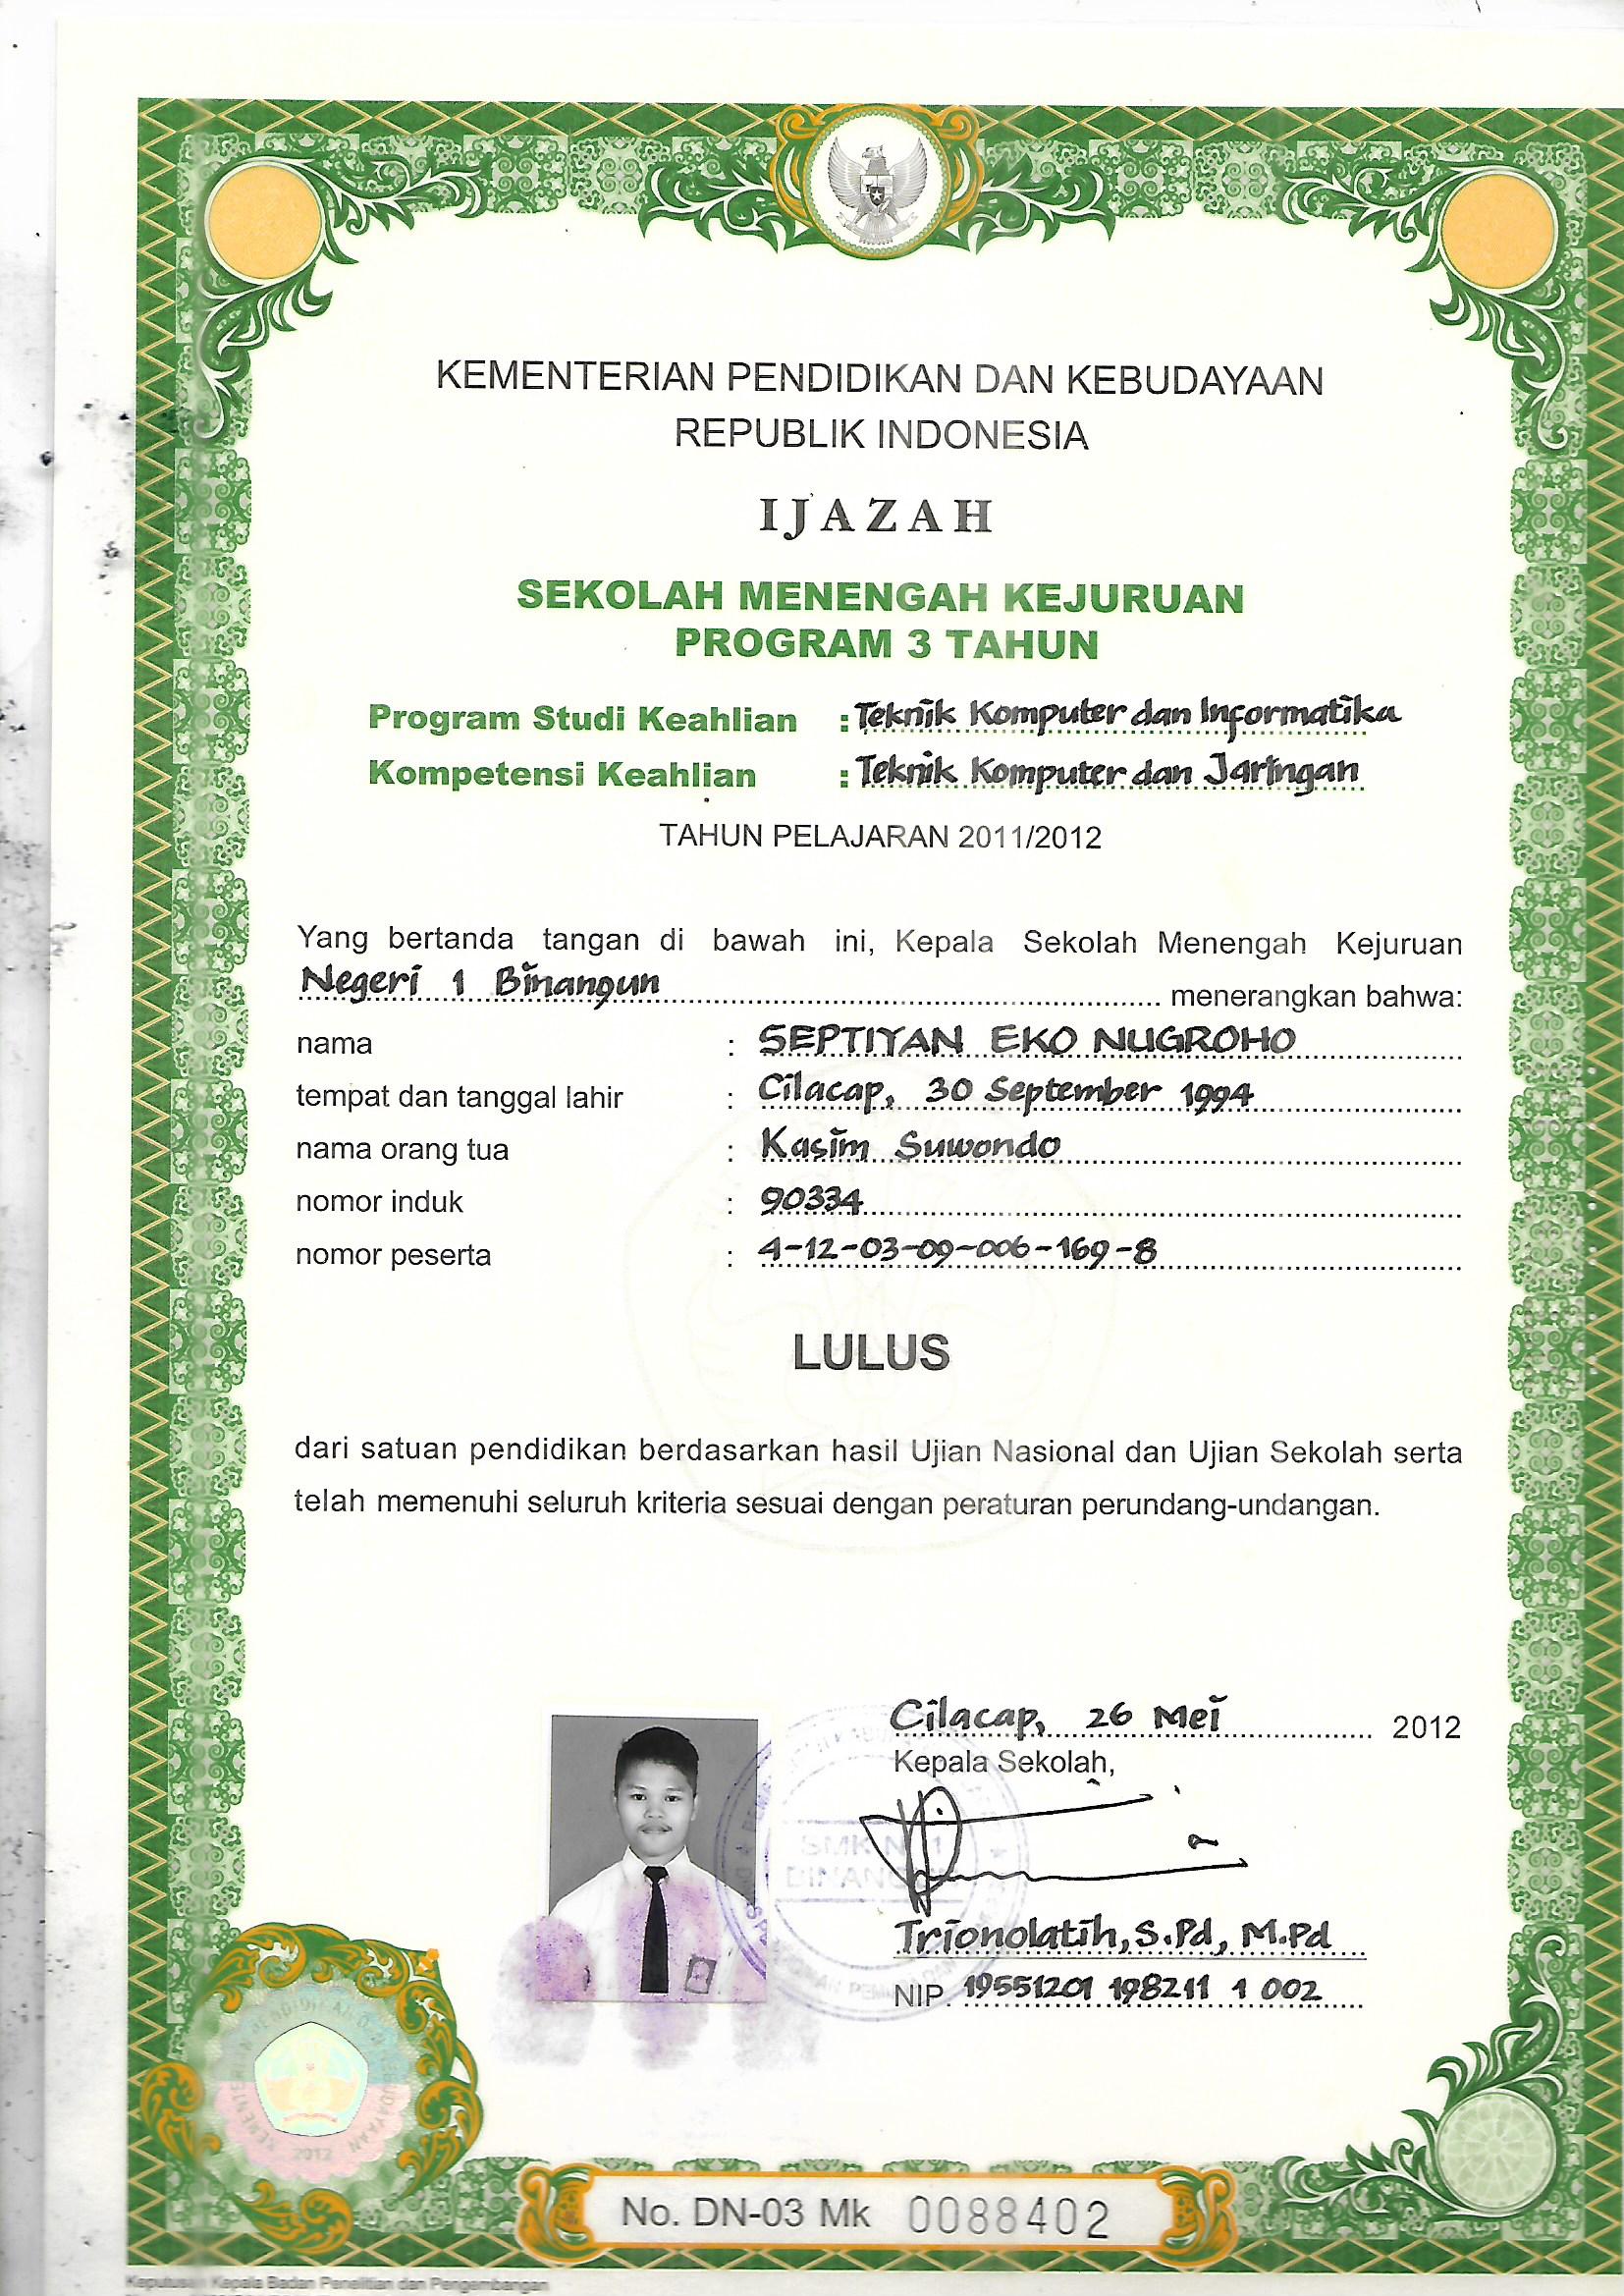 KEMENTERIAN PENDIDIKAN DAN KEBUDAYAAN
REPUBLIK INDONESIA
IJAZAH
SEKOLAH MENENGAH KEJURUAN
PROGRAM 3 TAHUN
Program Studi Keahlian : Teknik Komputer dan Informatika
Kompetensi Keahlian : Teknik Komputer dan Jaringan
TAHUN PELAJARAN 2011/2012
Yang bertanda tangan di bawah ini, Kepala Sekolah Menengah Kejuruan
Negeri 1 Binangun menerangkan bahwa:
nama : SEPTIYAN EKO NUGROHO
tempat dan tanggal lahir : Cilacap, 30 September 1994
nama orang tua : Kasim Suwondo
nomor induk : 90334
nomor peserta : 4-12-03-09-006-169-8
LULUS
dari satuan pendidikan berdasarkan hasil Ujian Nasional dan Ujian Sekolah serta
telah memenuhi seluruh kriteria sesuai dengan peraturan perundang-undangan.
Cilacap, 26 Mei 2012
Kepala Sekolah,
SMK N 1
Trionolatih, S.Pd, M.Pd
NIP. 19551201 198211 1 002
2012
No. DN-03 Mk 0088402
Kepala Badan Penelitian dan Pengembangan